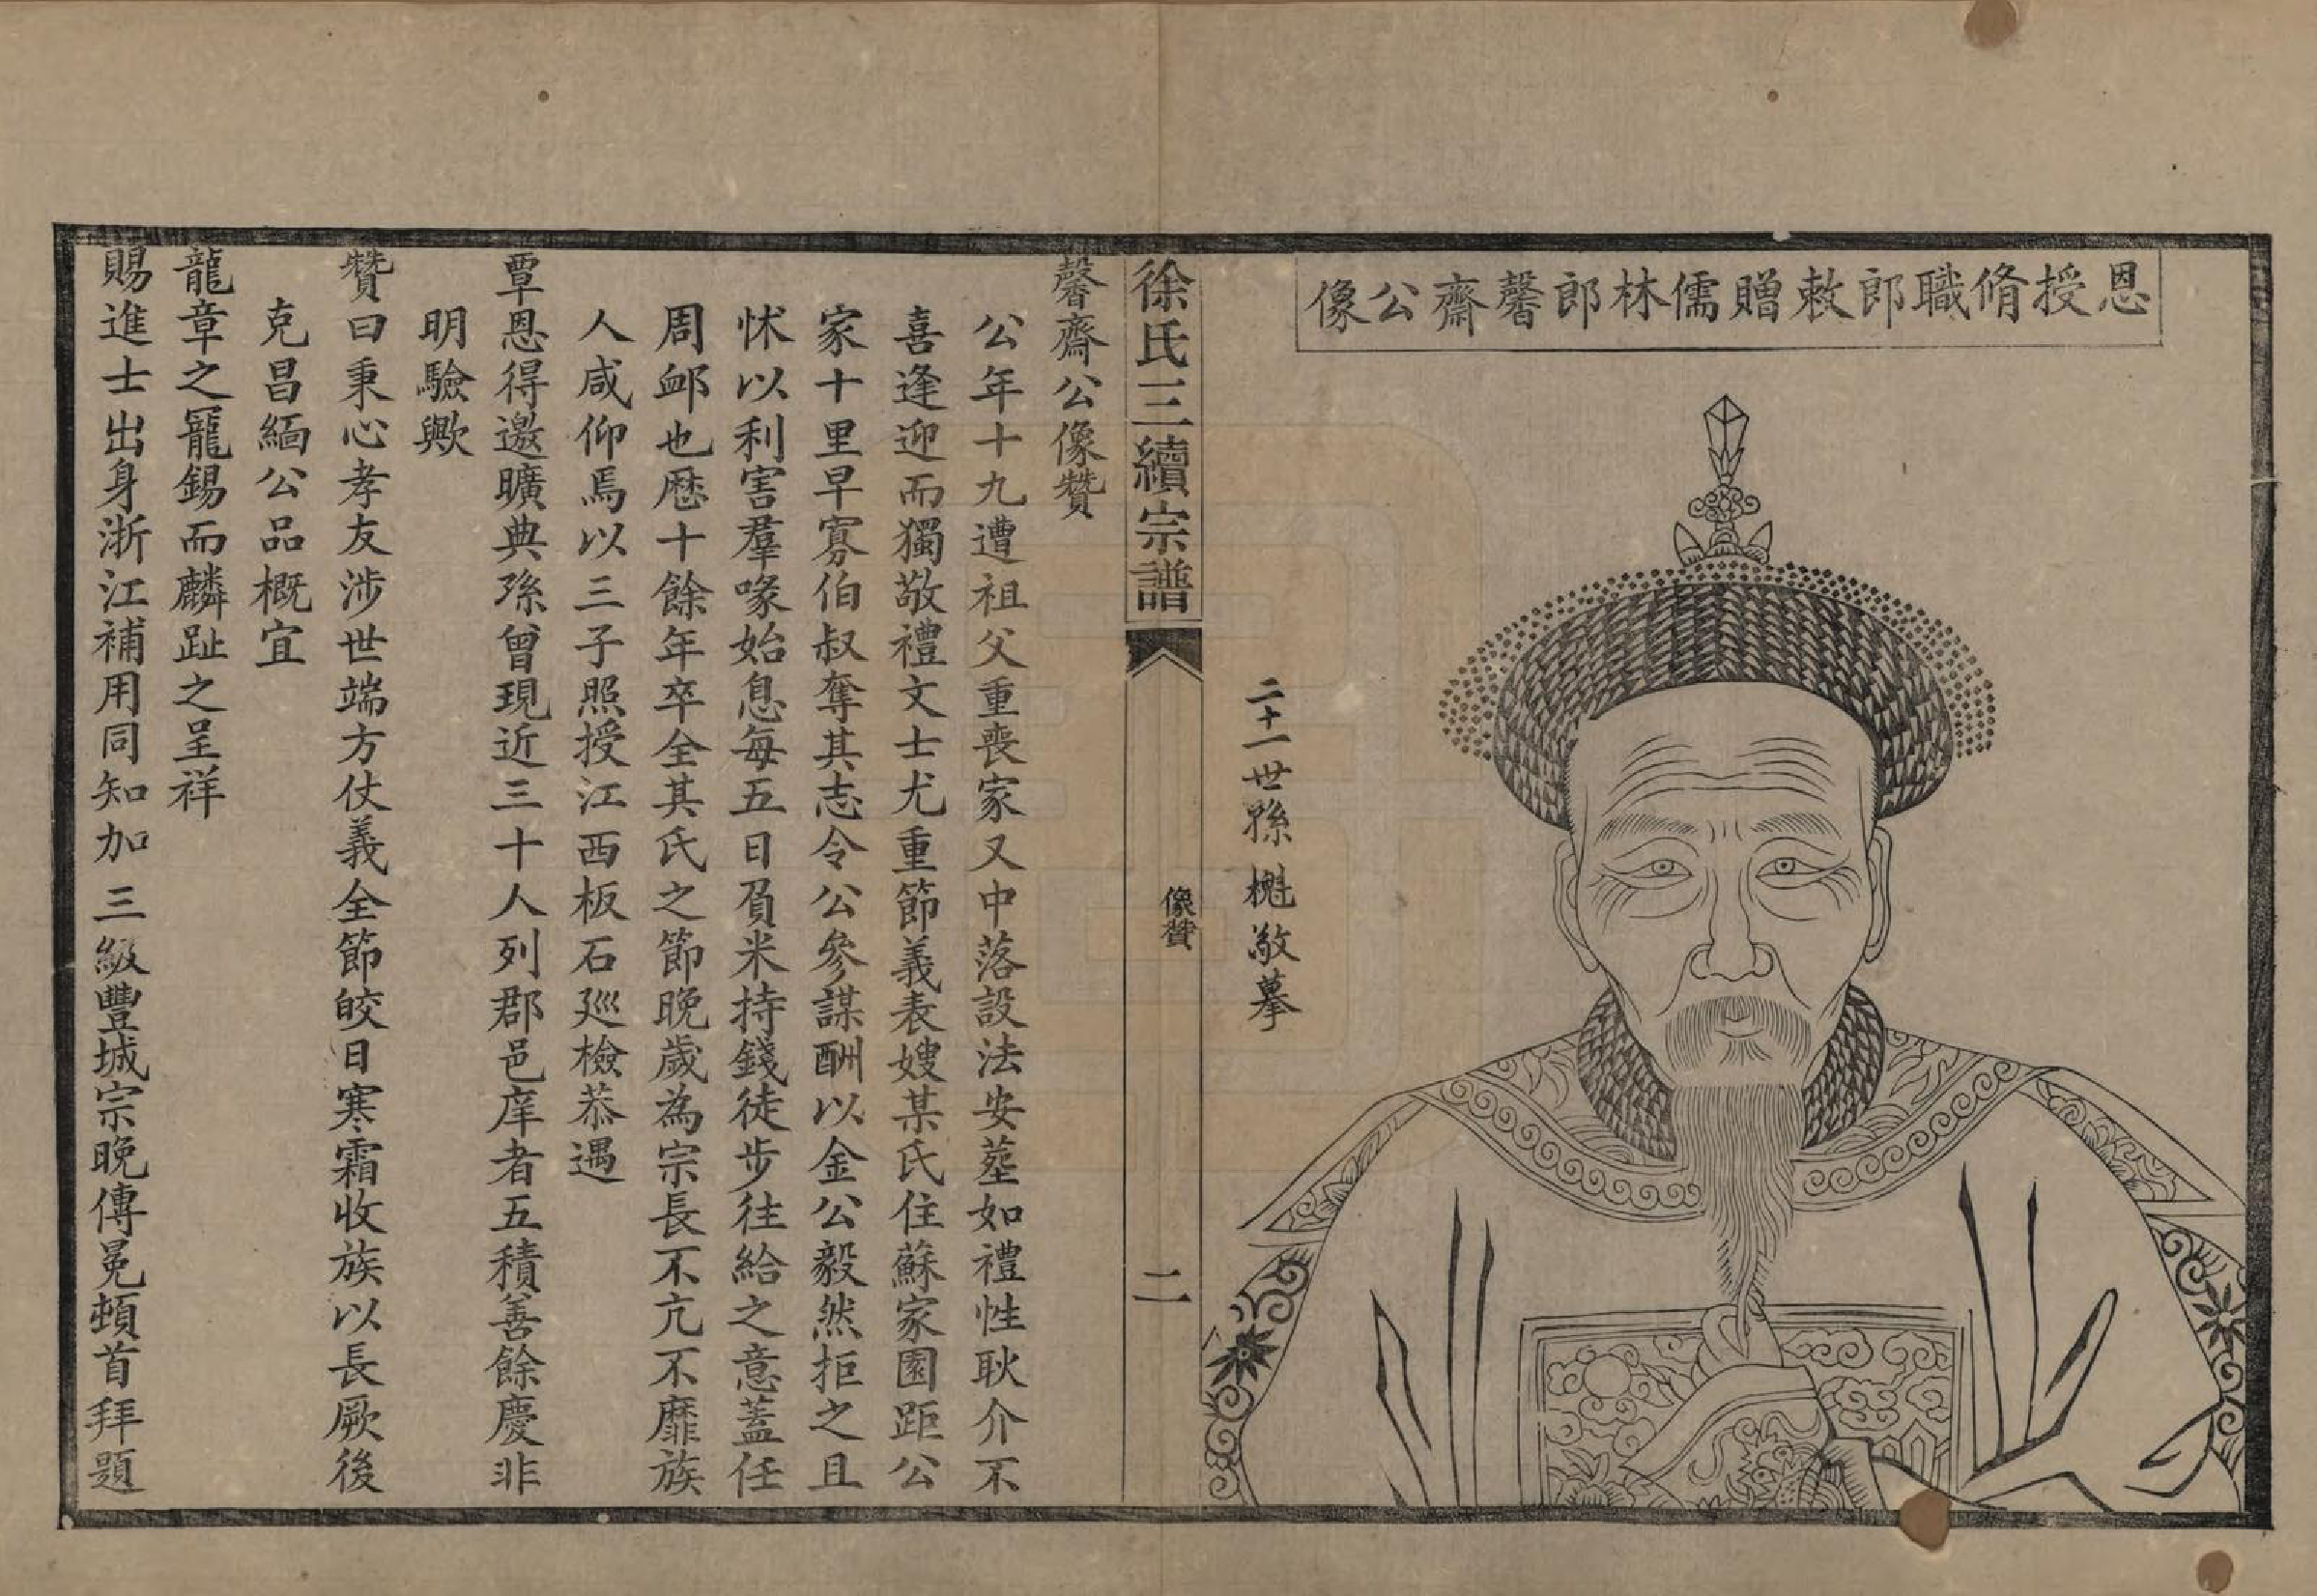 恩授脩職郎敕贈儒林郎馨齋公像
二十一世孫槐敬摹
徐氏三續宗譜
像贊
二
馨齋公像贊
公年十九遭祖父重喪家又中落設法安塟如禮性耿介不
喜逢迎而獨敬禮文士尤重節義表嫂某氏住蘇家園距公
家十里早寡伯叔奪其志令公參謀酬以金公毅然拒之且
怵以利害羣喙始息每五日負米持錢徒步往給之意蓋任
周衈也歷十餘年卒全其氏之節晚歲為宗長不亢不靡族
人咸仰焉以三子照授江西板石廵檢恭遇
覃恩得邀曠典孫曾現近三十人列郡邑庠者五積善餘慶非
明驗歟
贊曰秉心孝友涉世端方仗義全節皎日寒霜收族以長厥後
克昌緬公品概宜
龍章之寵錫而麟趾之呈祥
賜進士出身浙江補用同知加三級豐城宗晚傅冕頓首拜題